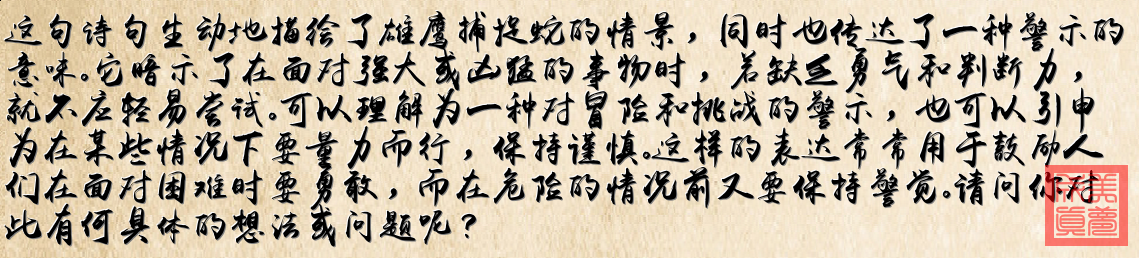 这句诗句生动地描绘了雄鹰捕捉蛇的情景，同时也传达了一种警示的
意味。它暗示了在面对强大或凶猛的事物时，若缺乏勇气和判断力，
就不应轻易尝试。可以理解为一种对冒险和挑战的警示，也可以引申
为在某些情况下要量力而行，保持谨慎。这样的表达常常用于鼓励人
们在面对困难时要勇敢，而在危险的情况前又要保持警觉。请问你对
此有何具体的想法或问题呢？